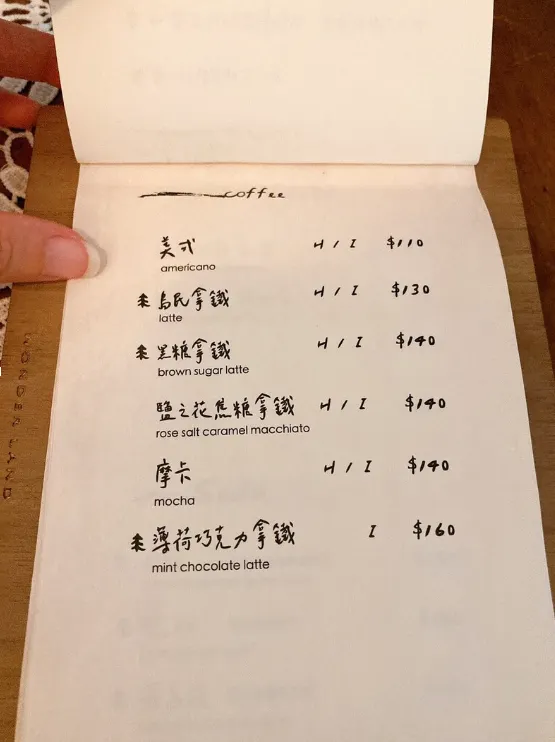 coffee
美式 H / I $110
americano
烏民拿鐵 H / I $130
latte
黑糖拿鐵 H / I $140
brown sugar latte
鹽之花焦糖拿鐵 H / I $140
rose salt caramel macchiato
摩卡 H / I $140
mocha
薄荷巧克力拿鐵 I $160
mint chocolate latte
WONDERLAND